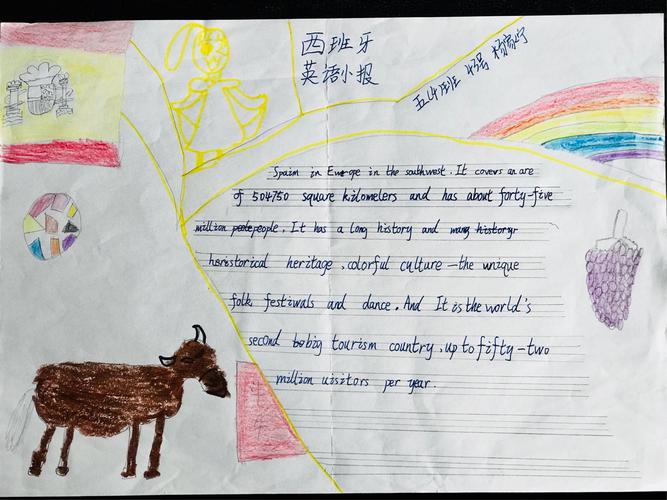 西班牙
英语小报
Spaim in Europe in the southwest. It covers an are
of 504750 square kilometers and has about forty-five
million people. It has a long history and
historical heritage, colorful culture — the unique
folk festivals and dance. And It is the world's
second big tourism country, up to fifty-two
million visitors per year.
斗牛